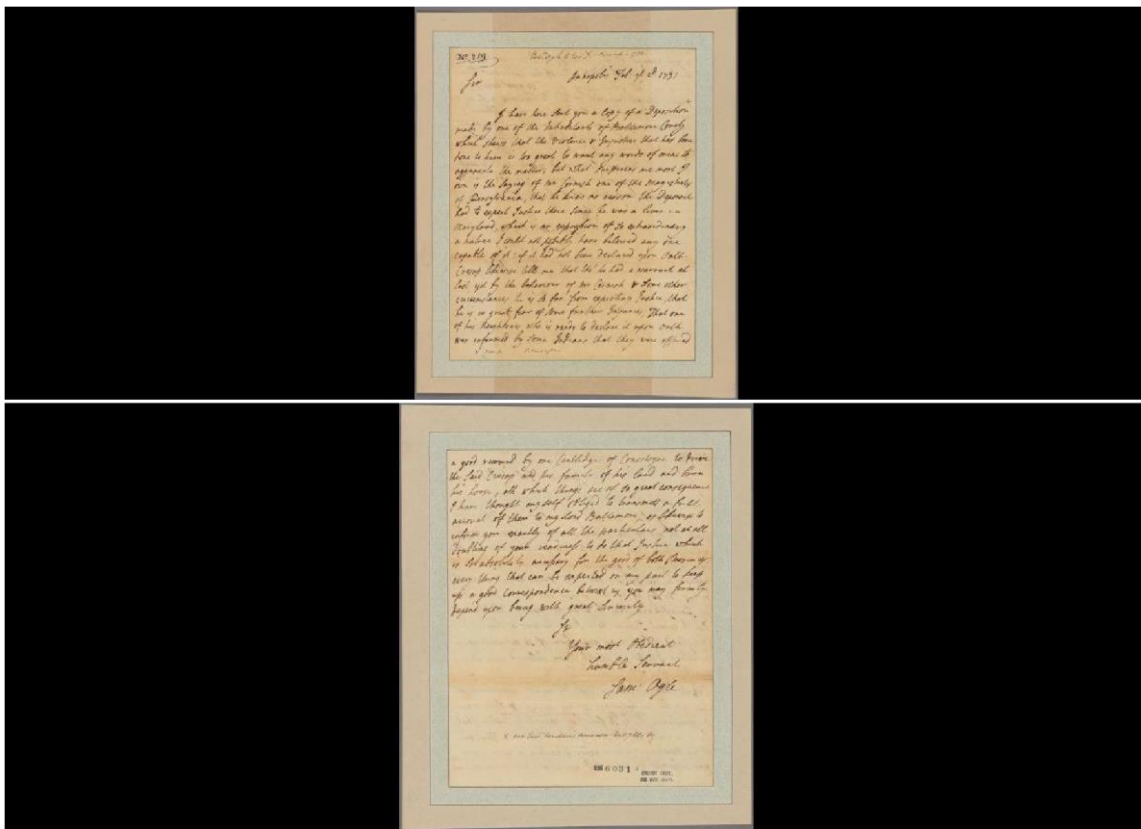 Sir
I have here sent you a Copy of a Deposition
made by one of the Inhabitants of Baltimore County
which shews that the Violence & Injustice that has been
done to him is too great to want any words of mine to
aggravate the matter, but what surprizes me most I
own is the Saying of Mr Cornish one of the Magistrates
of Pensylvania, that he knew no reason the Deponent
had to expect Justice there since he was a liver in
Maryland, which is an expression of so extraordinary
a nature I could not possibly have believed any one
capable of it if it had not been declared upon Oath
Cresap likewise tells me that tho' he had a warrant at
last yet by the behaviour of Mr Cornish & some other
circumstances he is so far from expecting Justice, that
he is in great fear of some further Injuries That one
of his Neighbours who is ready to declare it upon Oath
was informed by some Indians that they were offered
a good reward by one of Conestogoe to drive
the said Cresap and his family of his land and burn
his house, all which things are of so great consequence
I have thought my self obliged to transmit a full
account of them to my Lord Baltimore, as likewise to
inform you exactly of all the particulars not at all
doubting of your readiness to do that Justice which
is so absolutely necessary for the good of both Provinces
every thing that can be expected on my part to keep
up a good Correspondence between us you may firmly
depend upon being with great Sincerity
Sr
Your most Obedient
humble Servant
Sam: Ogle
6031